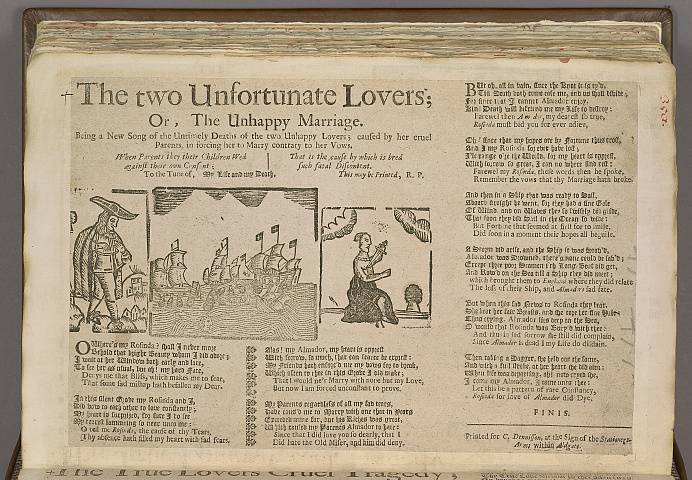 The two Unfortunate Lovers;
Or, The Unhappy Marriage.
Being a New Song of the Untimely Deaths of the two Unhappy Lovers; caused by her cruel
Parents, in forcing her to Marry contrary to her Vows.
When Parents they their Children Wed
against their own Consent;
That is the cause by which is bred
such fatal Discontent.
To the Tune of, My Life and my Death,
This may be Printed, R. P.
O Where's my Rosinda? shall I never more
Behold that bright Beauty whom I did adore;
I wait at her Windows both early and late,
To see her as usual, but oh! my hard Fate,
Denys me that Bliss, which makes me to fear,
That some sad mishap hath befallen my Dear.
In this silent Grove my Rosinda and I,
Did vow to each other to love constantly;
My heart is surprized,
my dearest lammenting is near unto me:
O tell me Rosinda, the cause of thy Tears,
Thy absence hath filled my heart with sad fears.
Alas! my Almador, my heart is opprest
With sorrow, so much, that can scarce be exprest:
My Friends hath enforc'd me my vows for to break,
Which often to thee in this Grove I did make;
That I would ne'r Marry with none but my Love,
But now I am forced unconstant to prove.
My Parents regardless of all my sad tears,
Have caus'd me to Marry with one that in years
Exceeded mine far, but his Riches was great,
Which caused my Parents Almador to hate:
Since that I did love you so dearly, that I
Did hate the Old Miser, and him did deny.
BUt oh, all in vain, since the Knot it is ty'd,
Till Death doth come ease me, and us shall divide;
For since that I cannot Almador enjoy,
Kind Death will befriend me my Life to destroy:
Farewel then my dearest so true,
Rosinda must bid you for ever adieu.
Oh! since that my hopes are by Fortune thus crost,
And I my Rosinda for ever have lost;
I'le range o're the World, for my heart is opprest,
With sorrow so great, I can no where find rest:
Farewel my Rosinda, these words then he spoke,
Remember the vows that thy Marriage hath broke.
And then in a Ship that was ready to Sail,
Aboard straight he went, for they had a fine Gale
Of Wind, and on Waves they so swiftly did glide,
That soon they did Sail in the Ocean so wide:
But Fortune that seemed at first for to smile,
Did soon in a moment their hopes all beguile.
A Storm did arise, and the Ship it was
Almador was Drowned, there's none could be sav'd;
Except three poor Seamen i'th Long-Boat did get,
And Row'd on the Sea till a Ship they did meet;
which brought them to England where they did relate
The loss of their Ship, and Almador's sad fate.
But when this sad News to Rosinda they bear,
She beat her fair Breasts, and she tore her fine Hair
Thus crying, Almador lies deep in the Sea,
O would that Rosinda was Bury'd with thee:
And thus in sad sorrow she still did complain,
Since Almador is dead my Life do disdain.
Then taking a Dagger, she held out the same,
And with a full stroke, at her heart she did aim:
When life was departing, ah! now cryed she,
I come my Almador, I come unto thee:
Let this be a pattern of rare Constancy,
Rosinda for love of Almador did Dye.
FINIS.
Printed for C. Dennisson, at the Sign of the Stationers-
Arms within Aldgate.
The True Lovers Cruel Tragedy;